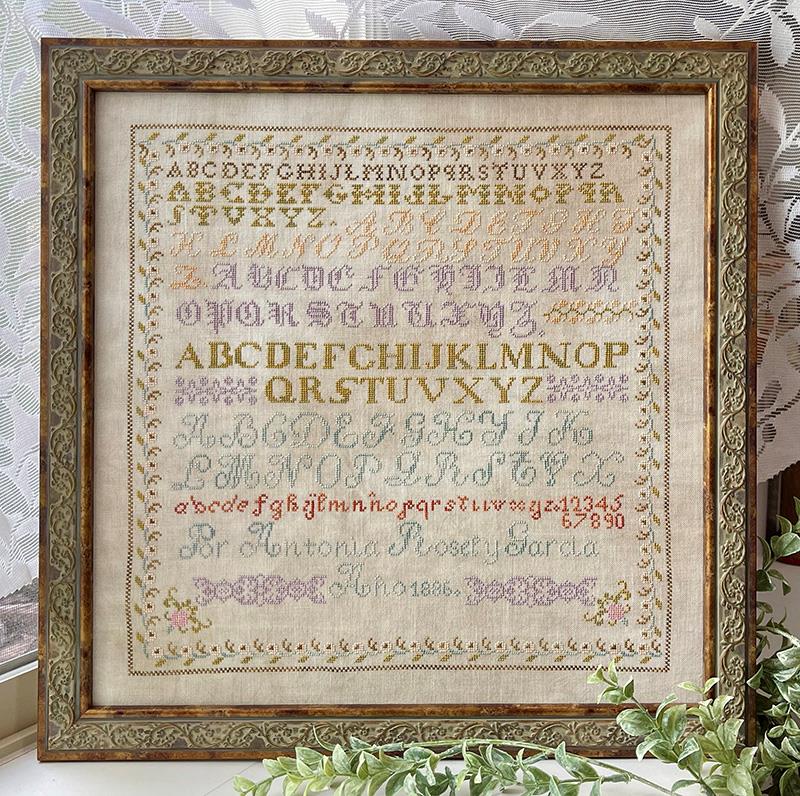 ABCDEFGHIJLMNOPQRSTUVXYZ
ABCDEFGHIJLMNOPQR
STVXYZ. ABCDEFGHI
KLMNOPQRSTUVXY
Z. ABCDEFGHIJLMN
OPQRSTUVXYZ.
ABCDEFGHIJKLMNOP
QRSTUVXYZ
ABCDEFGHYJK
LMNOPQRSTVX
abcdefghijlmnñopqrstuvxyz. 12345
67890
Por Antonia Roset y Garcia
Año 1886.